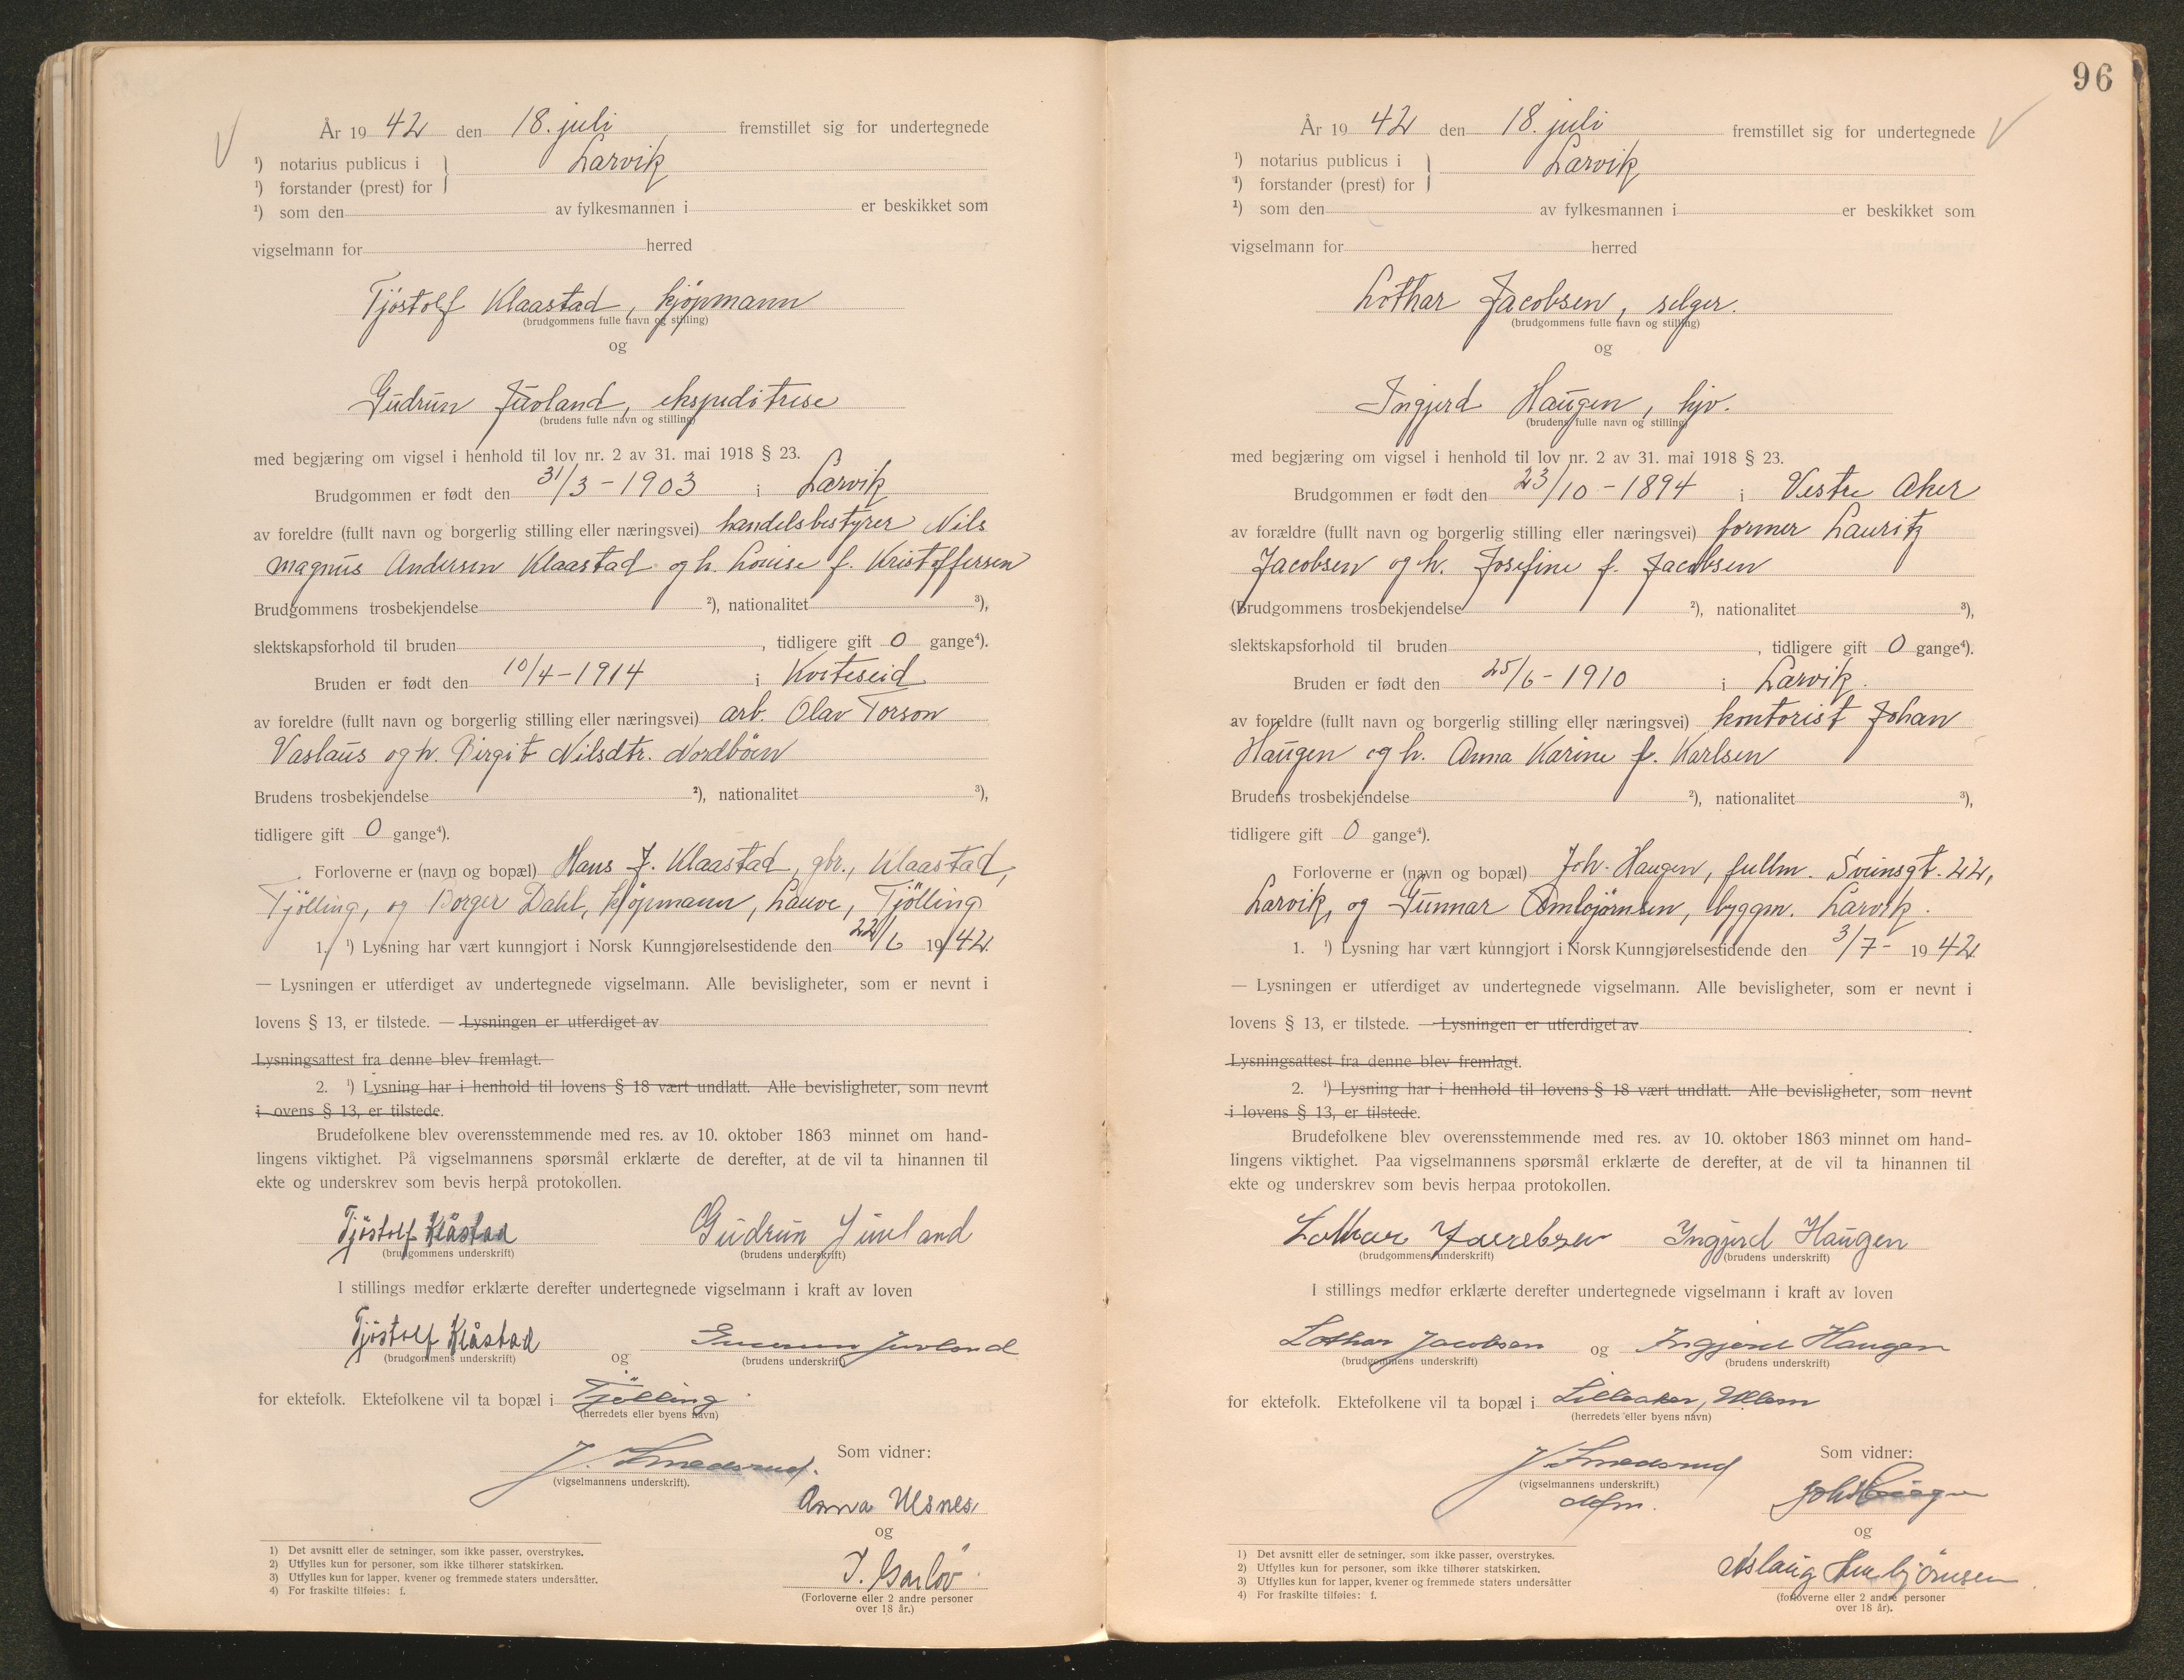 År 19 42 den 18. juli fremstillet sig for undertegnede
¹) notarius publicus i } Larvik
¹) forstander (prest) for
¹) som den av fylkesmannen i er beskikket som
vigselmann for herred
Tjöstolf Klaastad, kjöpmann
(brudgommens fulle navn og stilling)
og
Gudrun Juvland, ekspeditrise
(brudens fulle navn og stilling)
med begjæring om vigsel i henhold til lov nr. 2 av 31. mai 1918 § 23.
Brudgommen er født den 31/3 - 1903 i Larvik
av foreldre (fullt navn og borgerlig stilling eller næringsvei) handelsbestyrer Nils
Magnus Andersen Klaastad og h. Louise f. Kristoffersen
Brudgommens trosbekjendelse ²), nationalitet ³),
slektskapsforhold til bruden , tidligere gift 0 gange⁴).
Bruden er født den 10/4 - 1914 i Kviteseid
av foreldre (fullt navn og borgerlig stilling eller næringsvei) arb. Olav Torson
Vaslaus og h. Birgit Nilsdtr. Nordböen
Brudens trosbekjendelse ²), nationalitet ³),
tidligere gift 0 gange⁴).
Forloverne er (navn og bopæl) Hans J. Klaastad, gbr., Klaastad,
Tjölling, og Borger Dahl, kjöpmann, Lauve, Tjölling
1. ¹) Lysning har vært kunngjort i Norsk Kunngjørelsestidende den 22/6 1942
— Lysningen er utferdiget av undertegnede vigselmann. Alle bevisligheter, som er nevnt i
lovens § 13, er tilstede. — Lysningen er utferdiget av
Lysningsattest fra denne blev fremlagt.
2. ¹) Lysning har i henhold til lovens § 18 vært undlatt. Alle bevisligheter, som nevnt
i ovens § 13, er tilstede.
Brudefolkene blev overensstemmende med res. av 10. oktober 1863 minnet om hand-
lingens viktighet. På vigselmannens spørsmål erklærte de derefter, at de vil ta hinannen til
ekte og underskrev som bevis herpå protokollen.
Tjöstolf Klåstad Gudrun Juvland
(brudgommens underskrift) (brudens underskrift)
I stillings medfør erklærte derefter undertegnede vigselmann i kraft av loven
Tjöstolf Klåstad og Gudrun Juvland
(brudgommens underskrift) (brudens underskrift)
for ektefolk. Ektefolkene vil ta bopæl i Tjölling
(herredets eller byens navn)
J. Smedsrud. Som vidner:
(vigselmannens underskrift).
Anna Ulsnes
og
(Forloverne eller 2 andre personer
over 18 år.)
1) Det avsnitt eller de setninger, som ikke passer, overstrykes.
2) Utfylles kun for personer, som ikke tilhører statskirken.
3) Utfylles kun for lapper, kvener og fremmede staters undersåtter.
4) For fraskilte tilføies: f.
96
År 19 42 den 18. juli fremstillet sig for undertegnede
¹) notarius publicus i } Larvik
¹) forstander (prest) for
¹) som den av fylkesmannen i er beskikket som
vigselmann for herred
Lothar Jacobsen, selger.
(brudgommens fulle navn og stilling)
og
Ingjerd Haugen, hjv.
(brudens fulle navn og stilling)
med begjæring om vigsel i henhold til lov nr. 2 av 31. mai 1918 § 23.
Brudgommen er født den 23/10 - 1894 i Vestre Aker
av forældre (fullt navn og borgerlig stilling eller næringsvei) former Lauritz
Jacobsen og h. Josefine f. Jacobsen
(Brudgommens trosbekjendelse ²), nationalitet ³),
slektskapsforhold til bruden , tidligere gift 0 gange⁴).
Bruden er født den 25/6 - 1910 i Larvik.
av foreldre (fullt navn og borgerlig stilling eller næringsvei) kontorist Johan
Haugen og h. Anna Karine f. Karlsen
Brudens trosbekjendelse ²), nationalitet ³),
tidligere gift 0 gange⁴).
Forloverne er (navn og bopæl) Joh. Haugen, fullm. Sveinsgt. 22,
Larvik, og Gunnar Ambjørnsen, byggm. Larvik.
1. ¹) Lysning har vært kunngjort i Norsk Kunngjørelsestidende den 3/7 - 1942
— Lysningen er utferdiget av undertegnede vigselmann. Alle bevisligheter, som er nevnt i
lovens § 13, er tilstede. — Lysningen er utferdiget av
Lysningsattest fra denne blev fremlagt.
2. ¹) Lysning har i henhold til lovens § 18 vært undlatt. Alle bevisligheter, som nevnt
i lovens § 13, er tilstede.
Brudefolkene blev overensstemmende med res. av 10. oktober 1863 minnet om hand-
lingens viktighet. Paa vigselmannens spørsmål erklærte de derefter, at de vil ta hinannen til
ekte og underskrev som bevis herpaa protokollen.
Lothar Jacobsen Ingjerd Haugen
(brudgommens underskrift) (brudens underskrift)
I stillings medfør erklærte derefter undertegnede vigselmann i kraft av loven
Lothar Jacobsen og Ingjerd Haugen
(brudgommens underskrift) (brudens underskrift)
for ektefolk. Ektefolkene vil ta bopæl i Lilleaker, Ullern
(herredets eller byens navn)
J. Smedsrud Som vidner:
(vigselmannens underskrift.)
Joh Haugen
og
Aslaug Ambjörnsen
(forloverne eller 2 andre personer
over 18 år).
1) Det avsnitt eller de setninger, som ikke passer, overstrykes.
2) Utfylles kun for personer, som ikke tilhører statskirken.
3) Utfylles kun for lapper, kvener og fremmede staters undersåtter
4) For fraskilte tilføies: f.